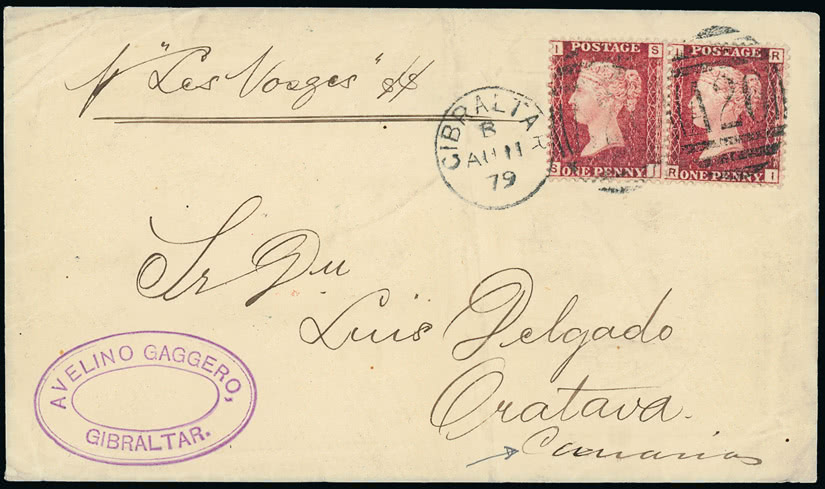 p "Les Vosges"
GIBRALTAR
B
AU 11
79
I S
POSTAGE
ONE PENNY
S I
I R
POSTAGE
ONE PENNY
R I
Sr Dn
Luis Delgado
Oratava.
Canarias
AVELINO GAGGERO,
GIBRALTAR.